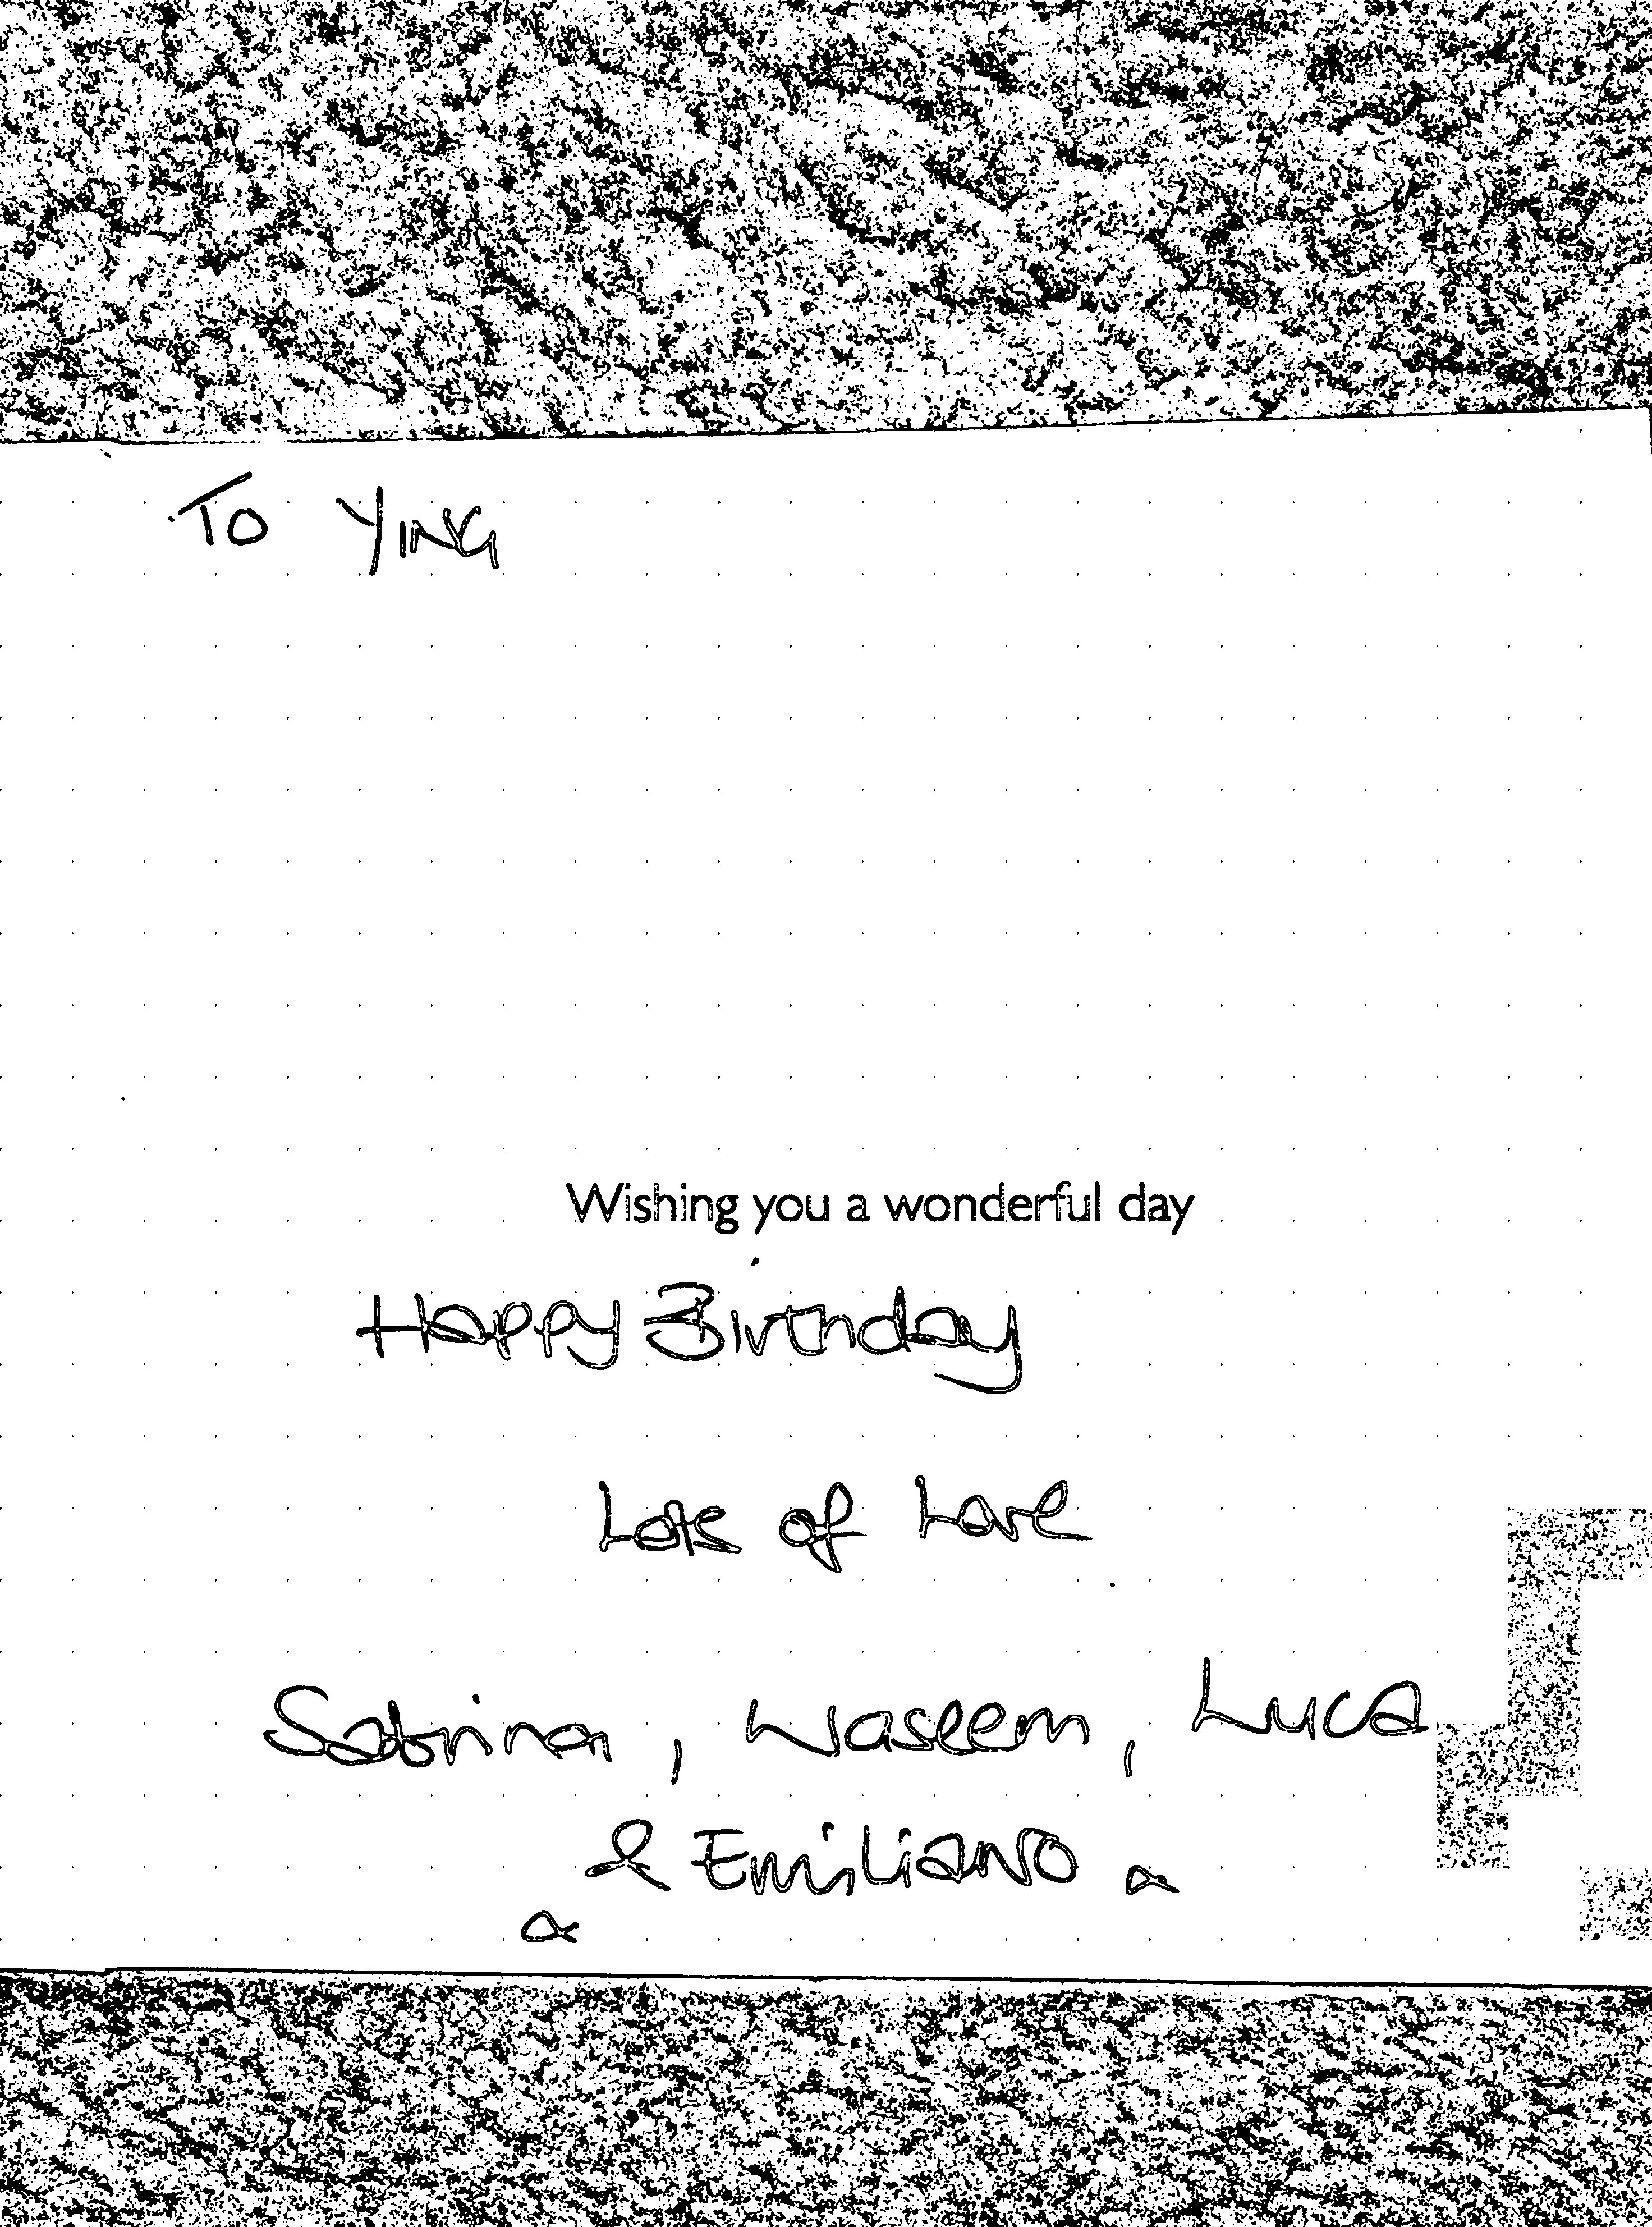 To YING
Wishing you a wonderful day
Happy Birthday
Lots of Love
Sabrina, Waseem, Luca
& Emiliano